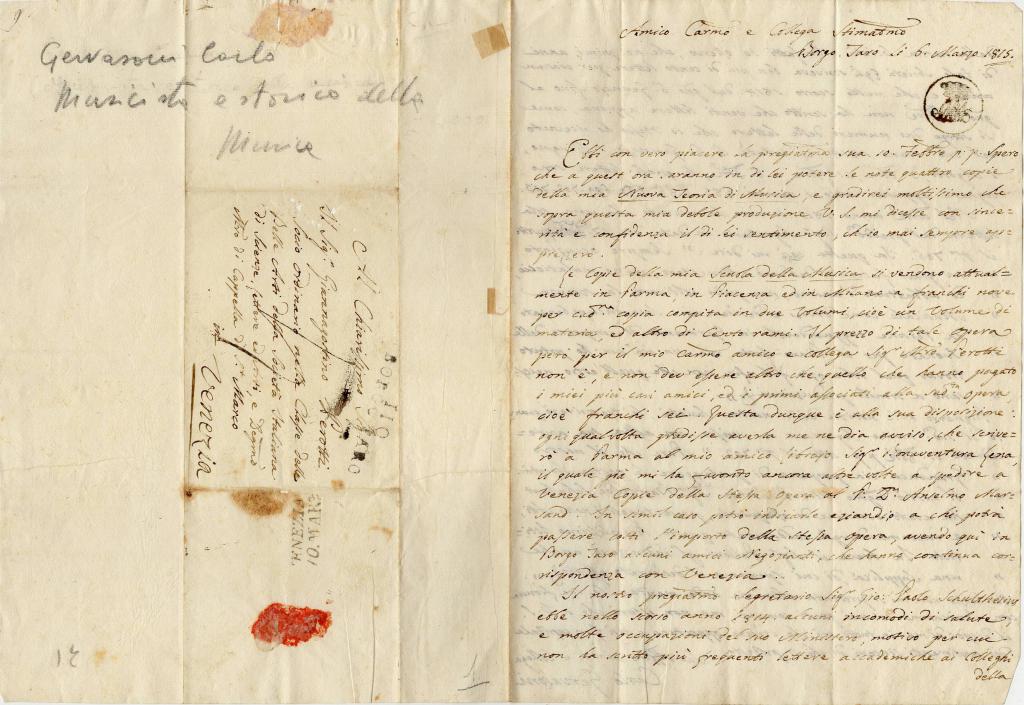 9
Gervasoni Carlo
Musicista e storico della
Musica
Al Chiarissimo
Il Sig.r Giannagostino Perotti
Socio ordinario nella Classe delle
Belle Arti della Società Italiana
di Scienze, Lettere ed Arti, e Degnò
Mro di Cappella di S. Marco
in Venezia
BORGO
TARO
12
1
Amico Carmo e Collega Stimatmo
Borgo Taro li 6. Marzo 1815.
Ebbi con vero piacere la pregiatma sua 10. Febbro p. p. Spero
che a quest'ora saranno in di lei potere le note quattro copie
della mia Nuova Teoria di Musica, e gradirei moltissimo che
sopra questa mia debole produzione V. S. mi dicesse con since-
rità e confidenza il di lei sentimento, ch'io mai sempre ap-
prezzerò.
Le Copie della mia Scuola della Musica si vendono attual-
mente in Parma, in Piacenza ed in Milano a franchi nove
per cadna copia compita in due Volumi, cioè un Volume di
materia, ed altro di Cento rami. Il prezzo di tale Opera
però per il mio Carmo amico e collega Sigr Mro Perotti
non è, e non dev'essere altro che quello che hanno pagato
i miei più cari amici, ed i primi associati alla sudta opera
cioè franchi sei. Questa dunque è alla sua disposizione:
ogni qual volta gradisse averla me ne dia avviso, che scrive-
rò a Parma al mio amico librajo Sigr Bonaventura Zena,
il quale già mi ha favorito ancora altre volte a spedire a
Venezia Copie della Stessa Opera al P. Dn Anselmo Mar-
sand. In simil caso potrò indicarle eziandio a chi potrà
passare costì l'importo della Stessa Opera, avendo qui in
Borgo Taro alcuni amici Negozianti, che hanno continua cor-
rispondenza con Venezia.
Il nostro pregiatmo Segretario Sigr Gio: Paolo Schulthesius
ebbe nello scorso anno 1814 alcuni incomodi di salute
e molte occupazioni del suo Ministero, motivo per cui
non ha scritto più frequenti lettere accademiche ai Colleghi
della